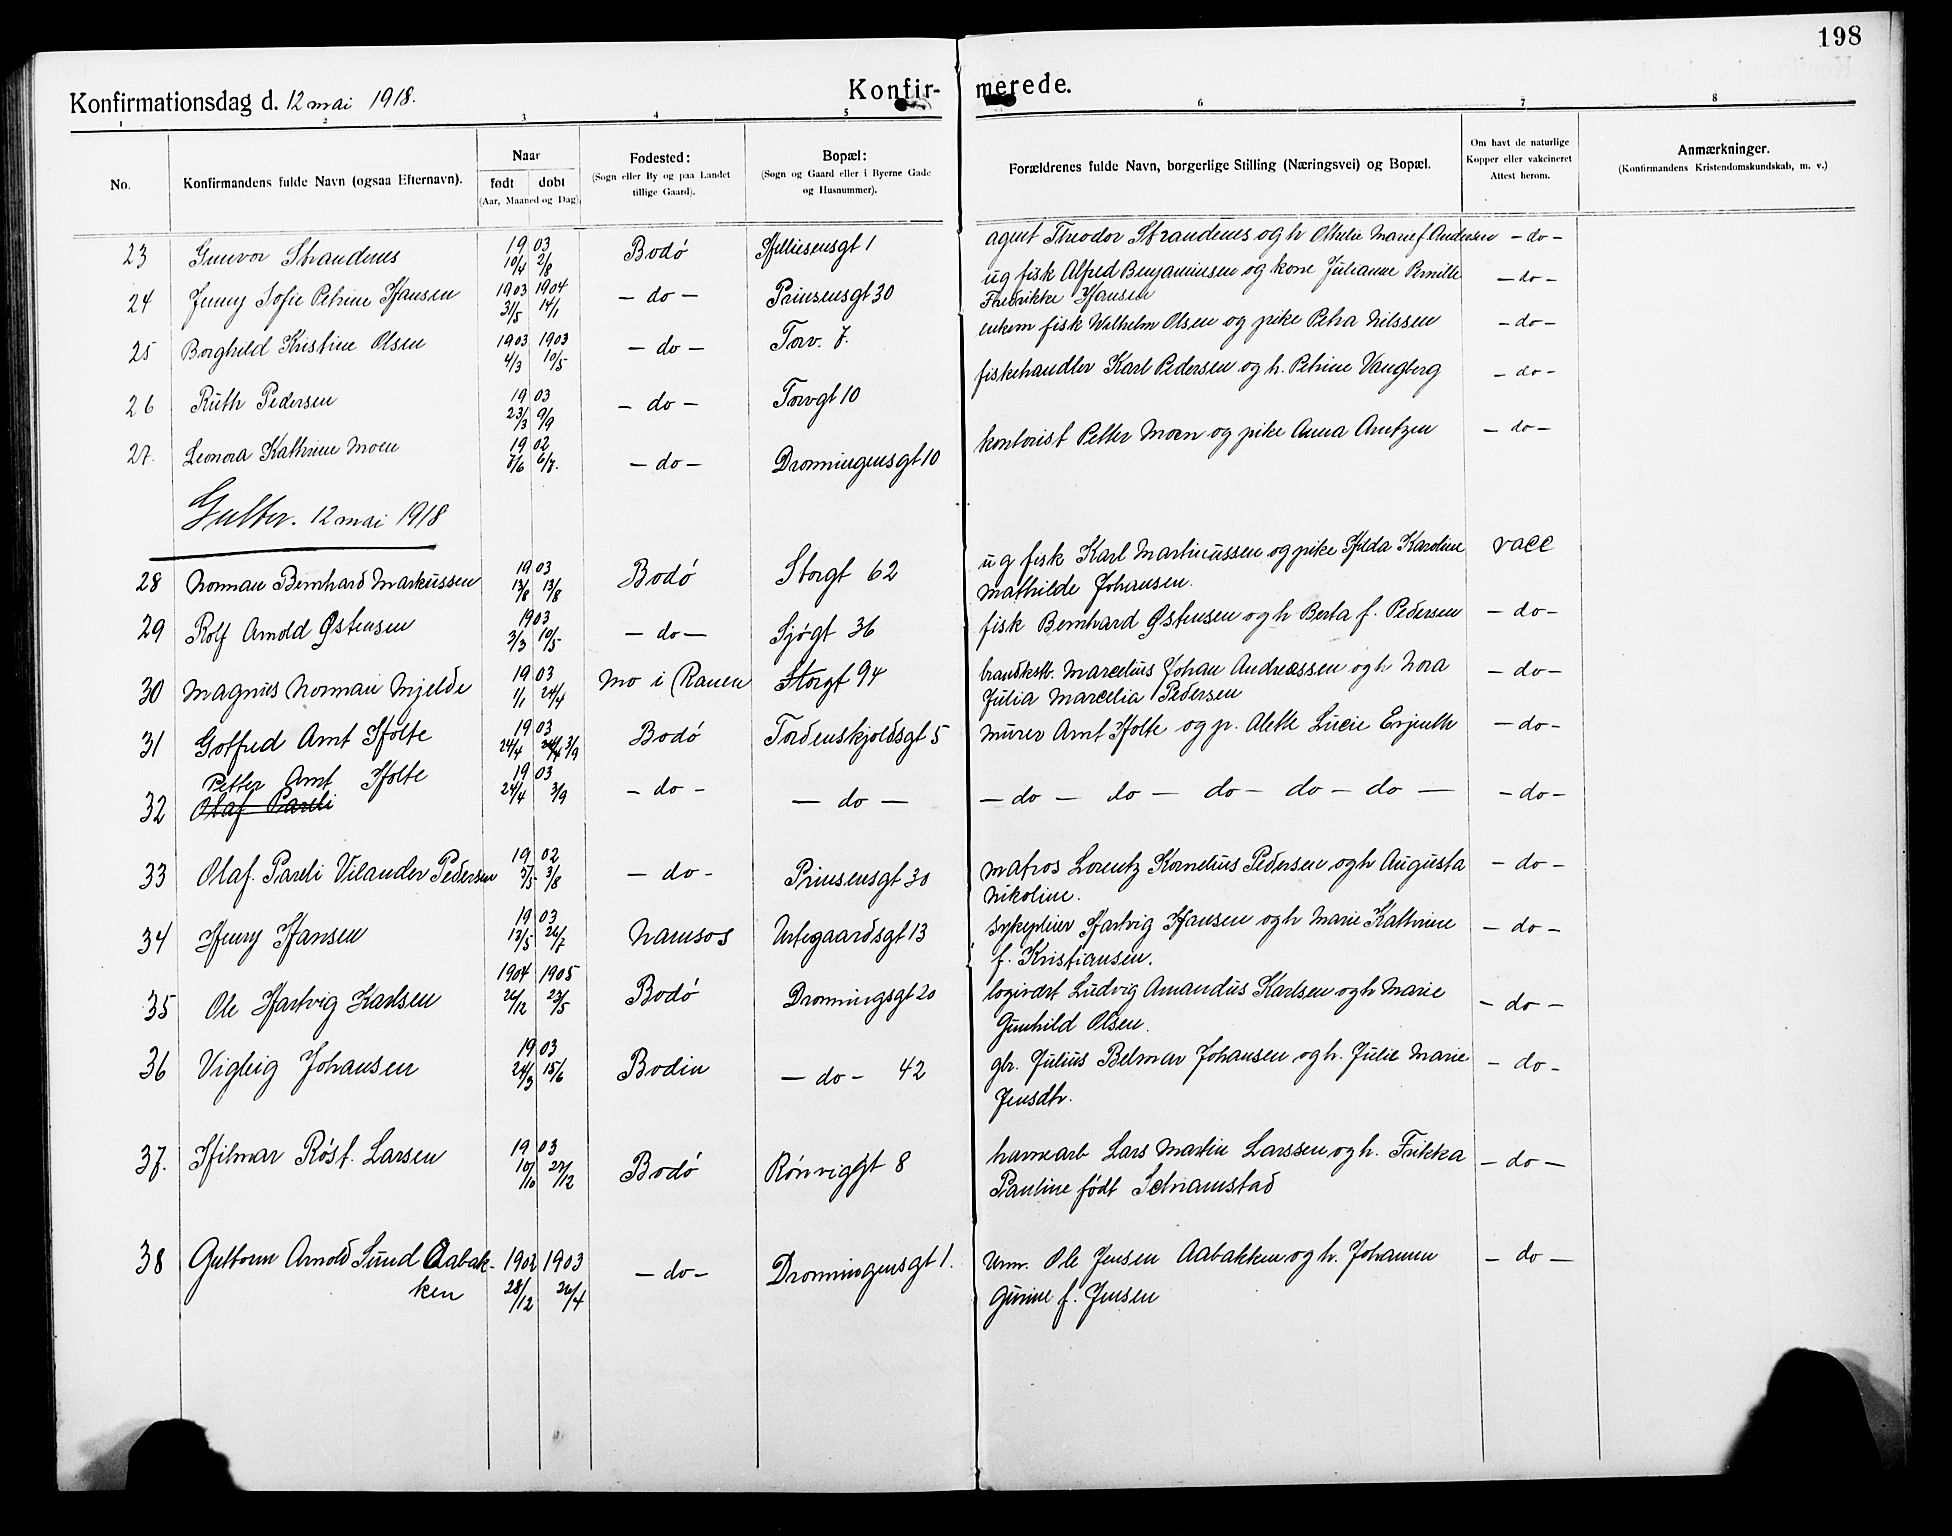 198
Konfirmationsdag d. 12 mai 1918.
Konfir-merede.
1 2 3 4 5 6 7 8
No. Konfirmandens fulde Navn (ogsaa Efternavn). Naar født døbt (Aar, Maaned og Dag). Fødested: (Sogn eller By og paa Landet tillige Gaard). Bopæl: (Sogn og Gaard eller i Byerne Gade og Husnummer). Forældrenes fulde Navn, borgerlige Stilling (Næringsvei) og Bopæl. Om havt de naturlige Kopper eller vakcineret Attest herom. Anmærkninger. (Konfirmandens Kristendomskundskab, m. v.)
23 Gunvor Strandenes 1903 10/4 2/8 Bodø gt 1 agent Theodor Strandenes og h Othelie Marie f. Andersen - do -
24 Jenny Sofie Petrine Hansen 1903 31/5 1904 14/1 - do - Prinsensgt 30 ug fisk Alfred Benjaminsen og kone Julianne Pernille - do -
Fredrikke Hansen
25 Borghild Kristine Olsen 1903 4/3 1903 10/5 - do - Torv. 7. enkem fisk Wilhelm Olsen og pike Petra Nilssen - do -
26 Ruth Pedersen 1903 23/3 9/9 - do - Torvgt 10 fiskehandler Karl Pedersen og h. Petrine Vangberg - do -
27. Leonora Kathrine Moen 1902 7/6 6/7. - do - Dronningensgt 10 kontorist Petter Moen og pike Anna Arntzen - do -
Gutter. 12 mai 1918
28 Norman Bernhard Markussen 1903 13/8 Bodø Storgt 62 ug fisk Karl Martinussen og pike Hilda Karoline vacc
Mathilde Johansen.
29 Rolf Arnold Østensen 1903 3/3 10/5 - do - Sjøgt 36 fisk Bernhard Østensen og h Berta f. Pedersen - do -
30 Magnus Norman Mjelde 1903 1/1 24/4 Mo i Ranen Storgt 94 Marcelius Johan Andreassen og h Nora - do -
Julia Marcelia Pedersen
31 Gotfred Arnt Holte 1903 24/4 24/4 3/9 Bodø Tordenskjoldsgt 5 murer Arnt Holte og p. Aleth Lucie - do -
Petter Arnt Holte 1903
32 Olaf Pareli 24/4 3/9 - do - - do - - do - do - do - do - do - - do -
33 Olaf Pareli Vilander Pedersen 1902 5/5 3/8 - do - Prinsensgt 30 matros Lorentz Kornelius Pedersen og h Augusta - do -
Nikoline.
34 Henry Hansen 1903 13/5 26/7 Namsos gt 13 sykepleier Hartvig Hansen og h Marie Kathrine - do -
f. Kristiansen.
35 Ole Hartvig Karlsen 1904 26/12 1905 23/5 Bodø Dronningsgt 20 logivært Ludvig Amandus Karlsen og h Marie - do -
Gunhild Olsen.
36 Vigleig Johansen 1903 24/3 15/6 Bodin - do - 42 gbr. Julius Belmar Johansen og h. Julie Marie - do -
Jensdtr.
37. Hilmar Røst Larsen 1903 10/10 27/12 Bodø Rønviggt 8 havnearb Lars Martin Larssen og h. Frikka - do -
Pauline født
38 Gutborm Arnold Sund Aabak- 1902 28/12 1903 26/4 - do - Dronningensgt 1. Ole Jensen Aabakken og h. Johanna - do -
ken Gurine f. Jensen